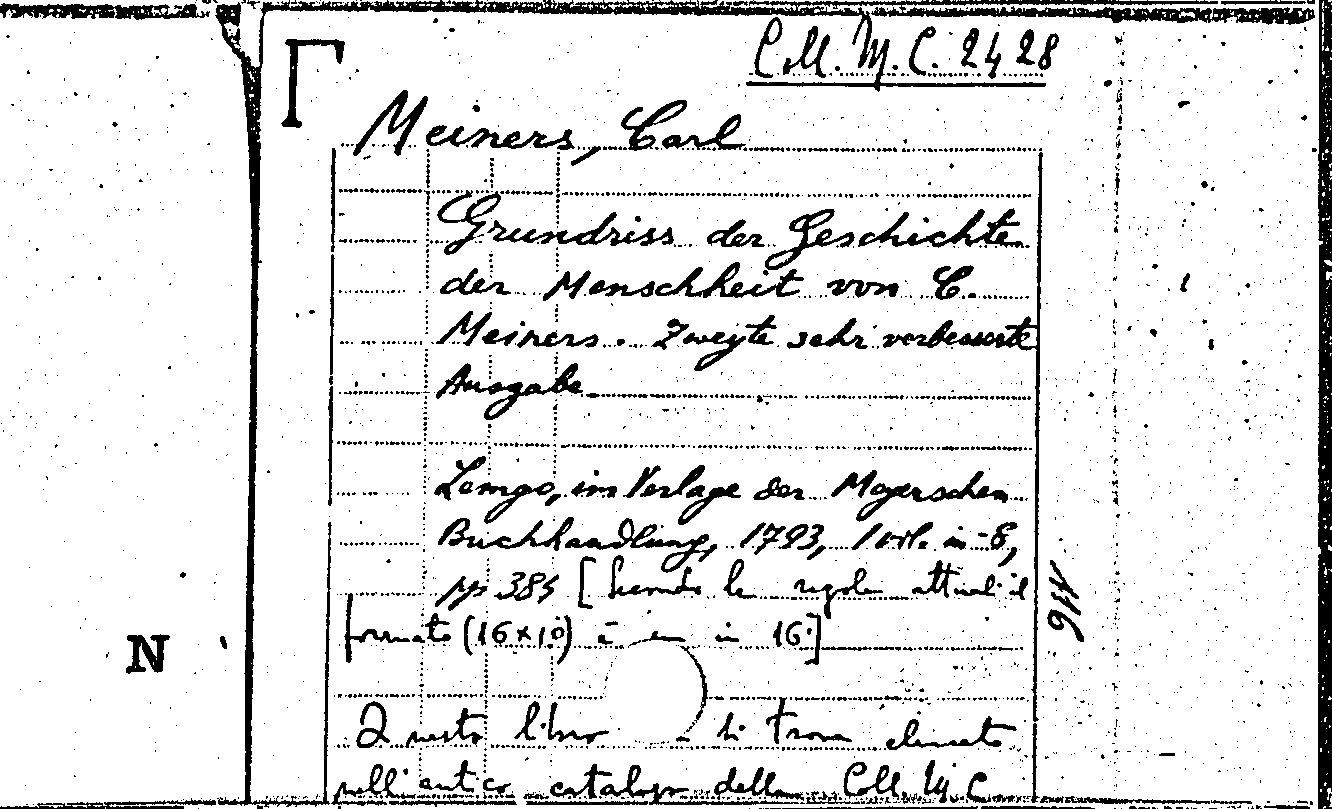 Coll. M. C. 2428
Meiners, Carl
Grundriss der Geschichte
der Menschheit von C.
Meiners. Zweyte sehr verbesserte
Ausgabe.
Lemgo, im Verlage der Meyerschen
Buchhandlung, 1793, 1 vol. in-8,
pp 384 [secondo le regole attuali il
formato (16x10) è in 16.]
416
N
Questo libro si trova elencato
nell'antico catalogo della Coll. M. C.